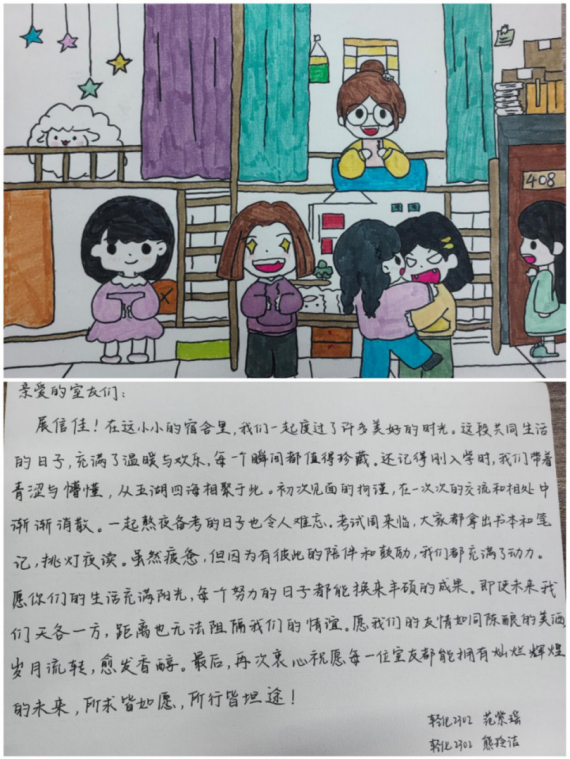 408
亲爱的室友们：
展信佳！在这小小的宿舍里，我们一起度过了许多美好的时光。这段共同生活
的日子，充满了温暖与欢乐，每一个瞬间都值得珍藏。还记得刚入学时，我们带着
青涩与懵懂，从五湖四海相聚于此。初次见面的拘谨，在一次次的交流和相处中
渐渐消散。一起熬夜备考的日子也令人难忘。考试周来临，大家都拿出书本和笔
记，挑灯夜读。虽然疲惫，但因为有彼此的陪伴和鼓励，我们都充满了动力。
愿你们的生活充满阳光，每个努力的日子都能换来丰硕的成果。即使未来我
们天各一方，距离也无法阻隔我们的情谊。愿我们的友情如同陈酿的美酒
岁月流转，愈发香醇。最后，再次衷心祝愿每一位室友都能拥有灿烂辉煌
的未来，所求皆如愿，所行皆坦途！
轻化2302 范紫瑶
轻化2302 熊玲洁